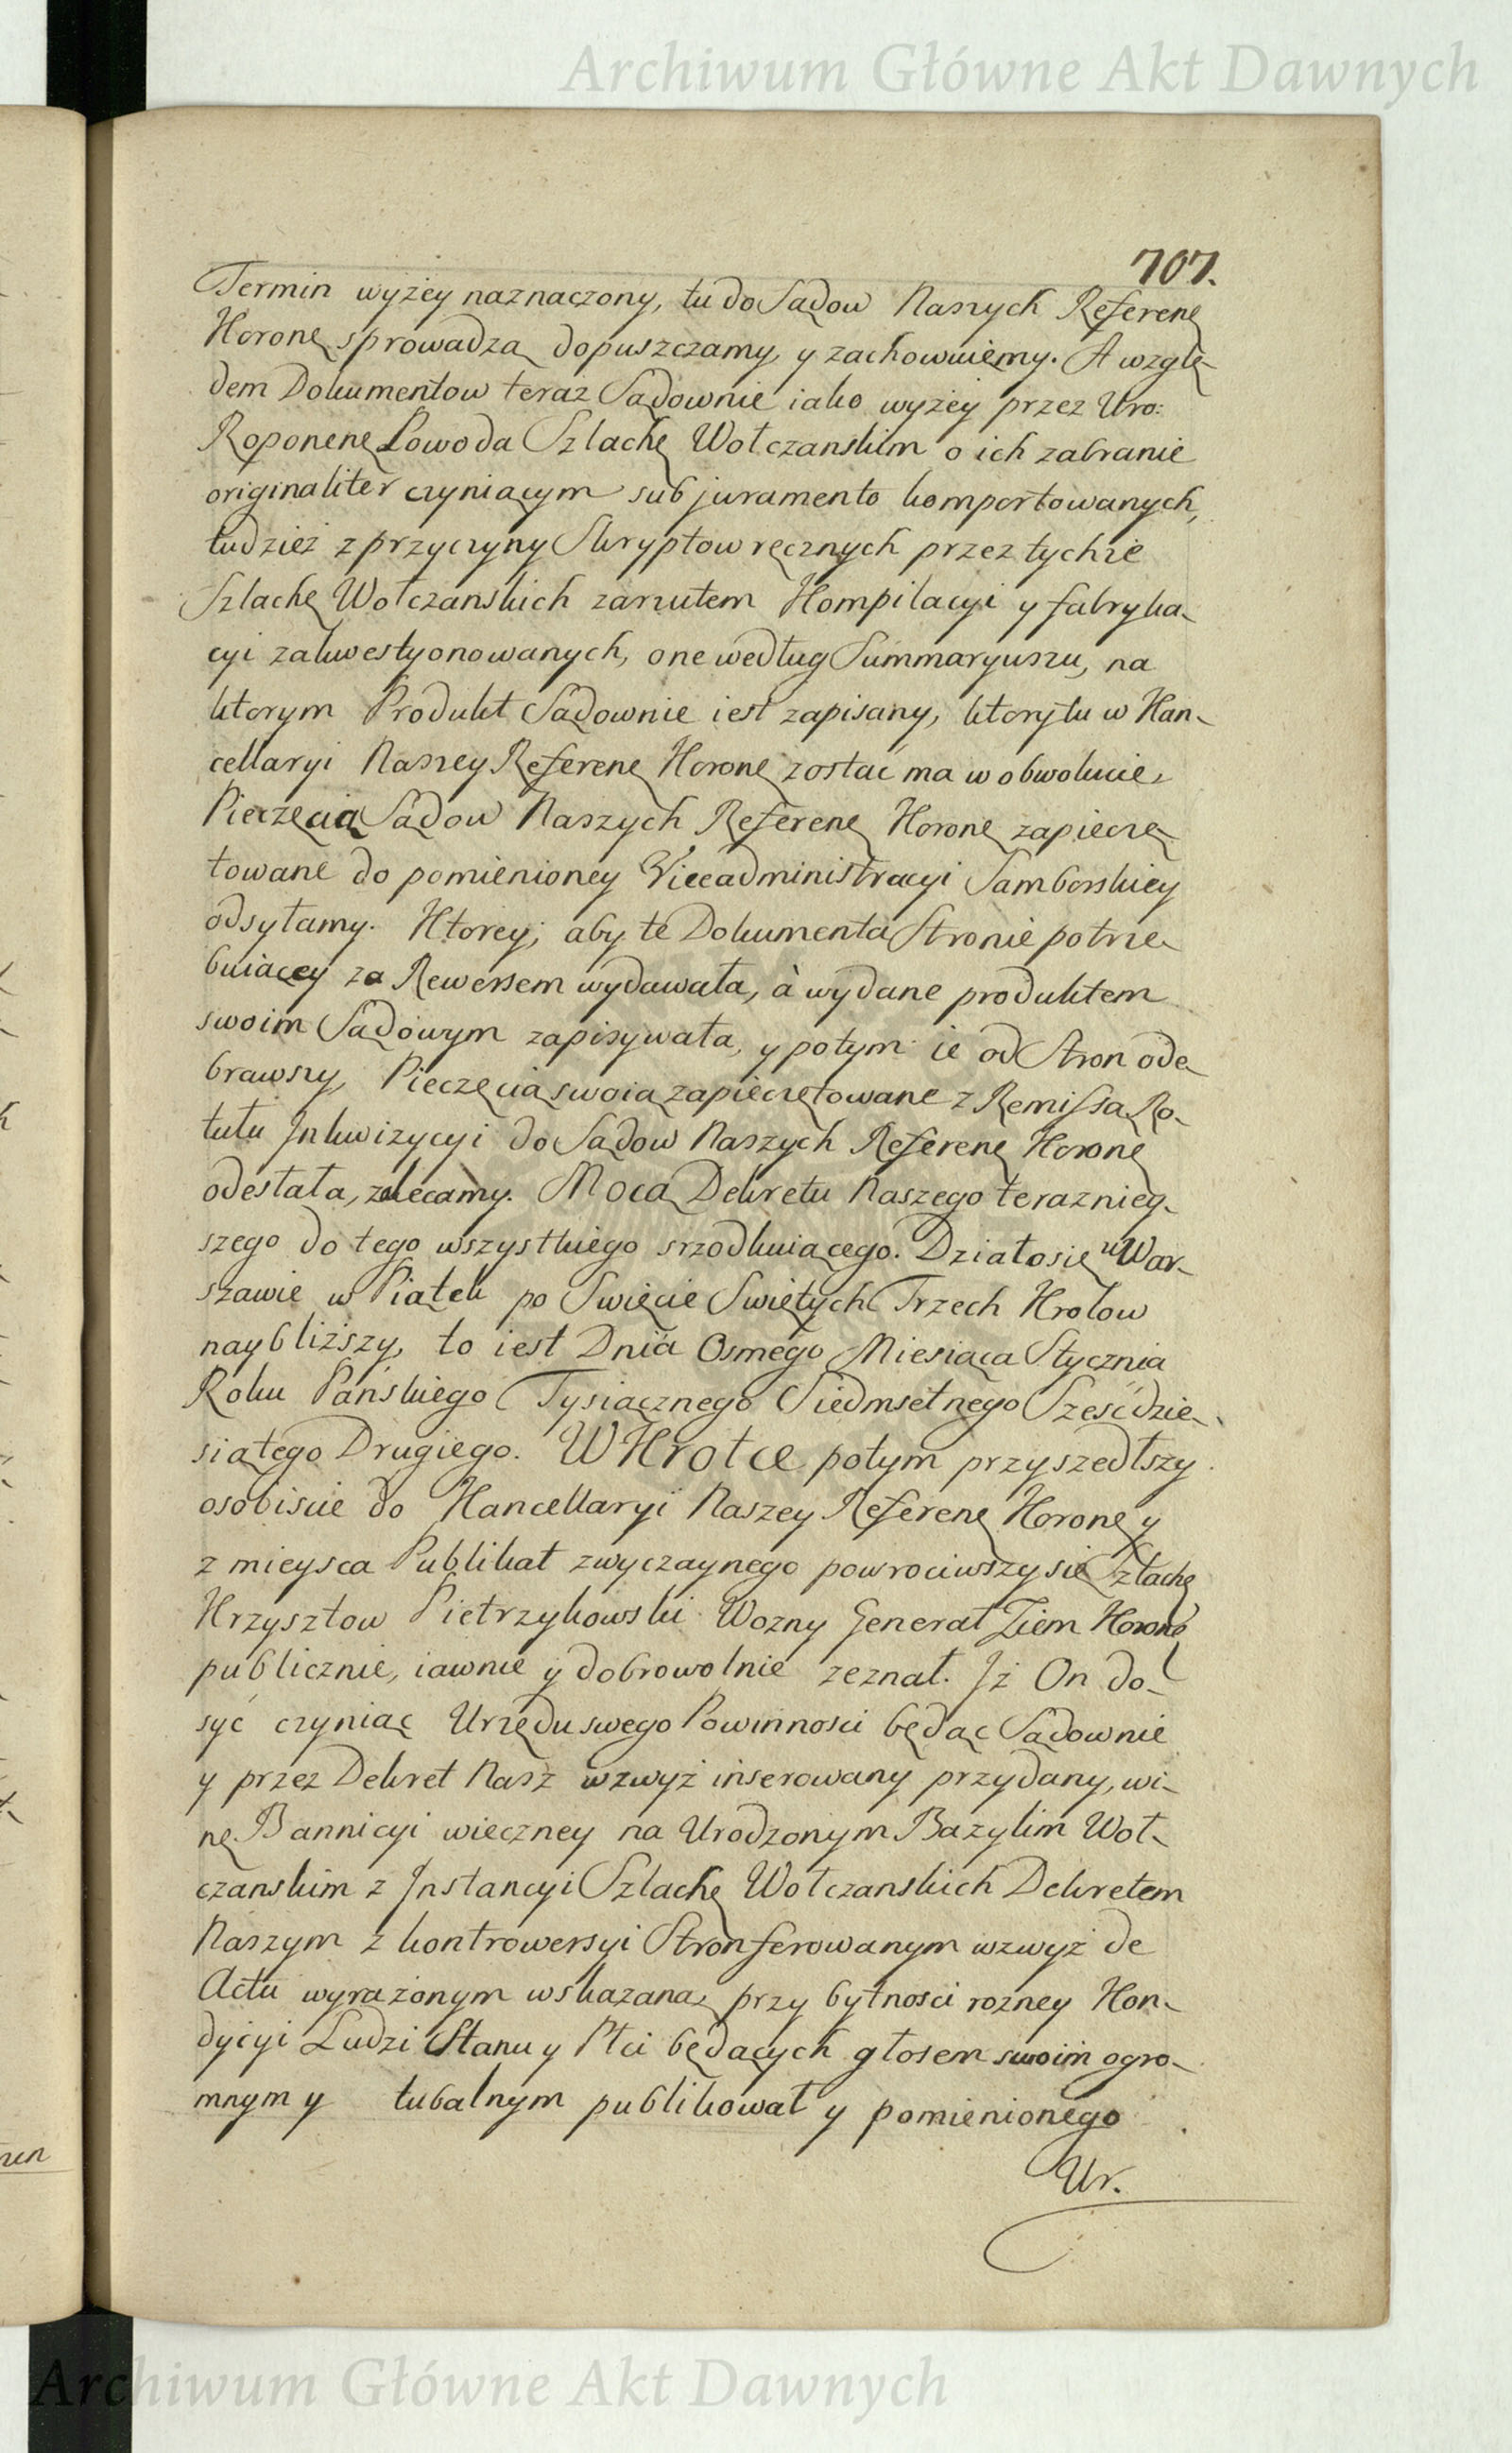 Archiwum Główne Akt Dawnych
707.
Termin wyżey naznaczony, tu do Sądow Naszych Referenę
Koronę sprowadza dopuszczamy, y zachowuiemy. A wzglę-
dem Dokumentow teraz Sądownie iako wyżey przez Uro:
Roponenę Powoda Szlachę Wołczanskim o ich zabranie
originaliter czyniącym sub juramento komportowanych,
tudzież z przyczyny Skryptow ręcznych przez tychże
Szlachę Wołczanskich zarzutem Kompilacyi y fabryka-
cyi zakwestyonowanych, one według Summaryuszu, na
ktorym Produkt Sądownie iest zapisany, ktory tu w Kan-
cellaryi Naszey Referenę Koronę zostać ma w obwolucie,
Pieczęcią Sądow Naszych Referenę Koronę zapieczę-
towane do pomienioney Viceadministracyi Samborskiey
odsyłamy. Ktorey, aby te Dokumenta Stronie potrze-
buiącey za Rewersem wydawała, à wydane produktem
swoim Sądowym zapisywała, y potym ie od Stron ode-
brawszy, Pieczęcią swoią zapieczętowane z Remissą Ro-
tułu Inkwizycyi do Sądow Naszych Referenę Koronę
odesłała, zalecamy. Mocą Dekretu Naszego terazniey-
szego do tego wszystkiego srzodkuiącego. Działo się w War-
szawie w Piątek po Swięcie Swiętych Trzech Krolow
naybliższy, to iest Dnia Osmego Miesiąca Stycznia
Roku Pańskiego Tysiącznego Siedmsetnego Sześćdzie-
siątego Drugiego. W Krotce potym przyszedłszy
osobiscie do Kancellaryi Naszey Referenę Koronę y
z mieysca Publikat zwyczaynego powrociwszy się Szlachę
Krzysztow Pietrzykowski Wozny Generał Ziem Koronę
publicznie, iawnie y dobrowolnie zeznał. Iż On do-
syć czyniąc Urzędu swego Powinnosci będąc Sądownie
y przez Dekret Nasz wzwyż inserowany przydany, wi-
nę Bannicyi wieczney na Urodzonym Bazylim Woł-
czanskim z Instancyi Szlachę Wołczanskich Dekretem
Naszym z kontrowersyi Stron ferowanym wzwyż de
Actu wyrażonym wskazaną, przy bytnosci rozney Kon-
dycyi Ludzi Stanu y Płci będących głosem swoim ogro-
mnym y tubalnym publikował y pomienionego
Ur.
Archiwum Główne Akt Dawnych